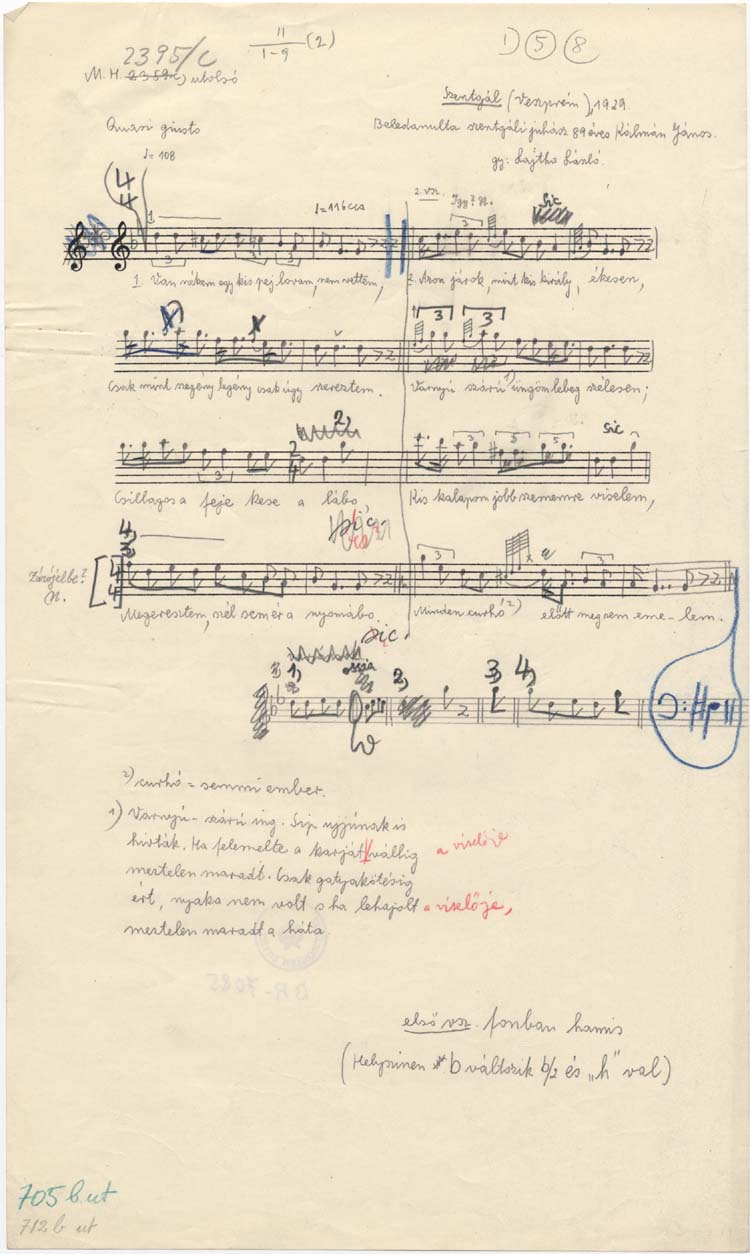 2395/c
11
1-9 (2)
1) 5 8
M. H. 2359c) utolsó
Szentgál (Veszprém), 1929.
Quasi giusto
Beledanulta szentgáli juhász 89 éves Kálmán János.
gy: Lajtha László.
♩= 108
4
4
♩=116 ccs
2. vsz.
Így? N.
Sic
1
3
3
3
3
1 Van nékem egy kis pej lovam, nem vettem,
2. Azon járok, mint kis király, ékesen,
3
3
Csak mint szegény legény csak úgy szereztem.
Varnyú szárú 1) üngöm lebeg szélesen;
2)
3
3
5
5
sic
2
4
Csillagos a feje kese a lábo,
Kis kalapom jobb szememre viselem,
sic.
4)
3)
Zárójelbe?
N.
4
4
3
3
Megeresztem, szél sem ér a nyomábo.
Minden curhó 2) előtt meg sem eme-lem.
sic.
ossia
3) 1)
2)
3)
4)
2) curhó = semmi ember.
1) Varnyú-szárú ing. Sip ujjúnak is
hívták. Ha felemelte a karját vállig a viselője
meztelen maradt. Csak gatyakötésig
ért, nyaka nem volt s ha lehajolt a viselője,
meztelen maradt a háta.
DR-7085
első vsz. fonban hamis
(Helyszinen b váltszik b/2 és „h" val)
705 b. ut
712 b ut